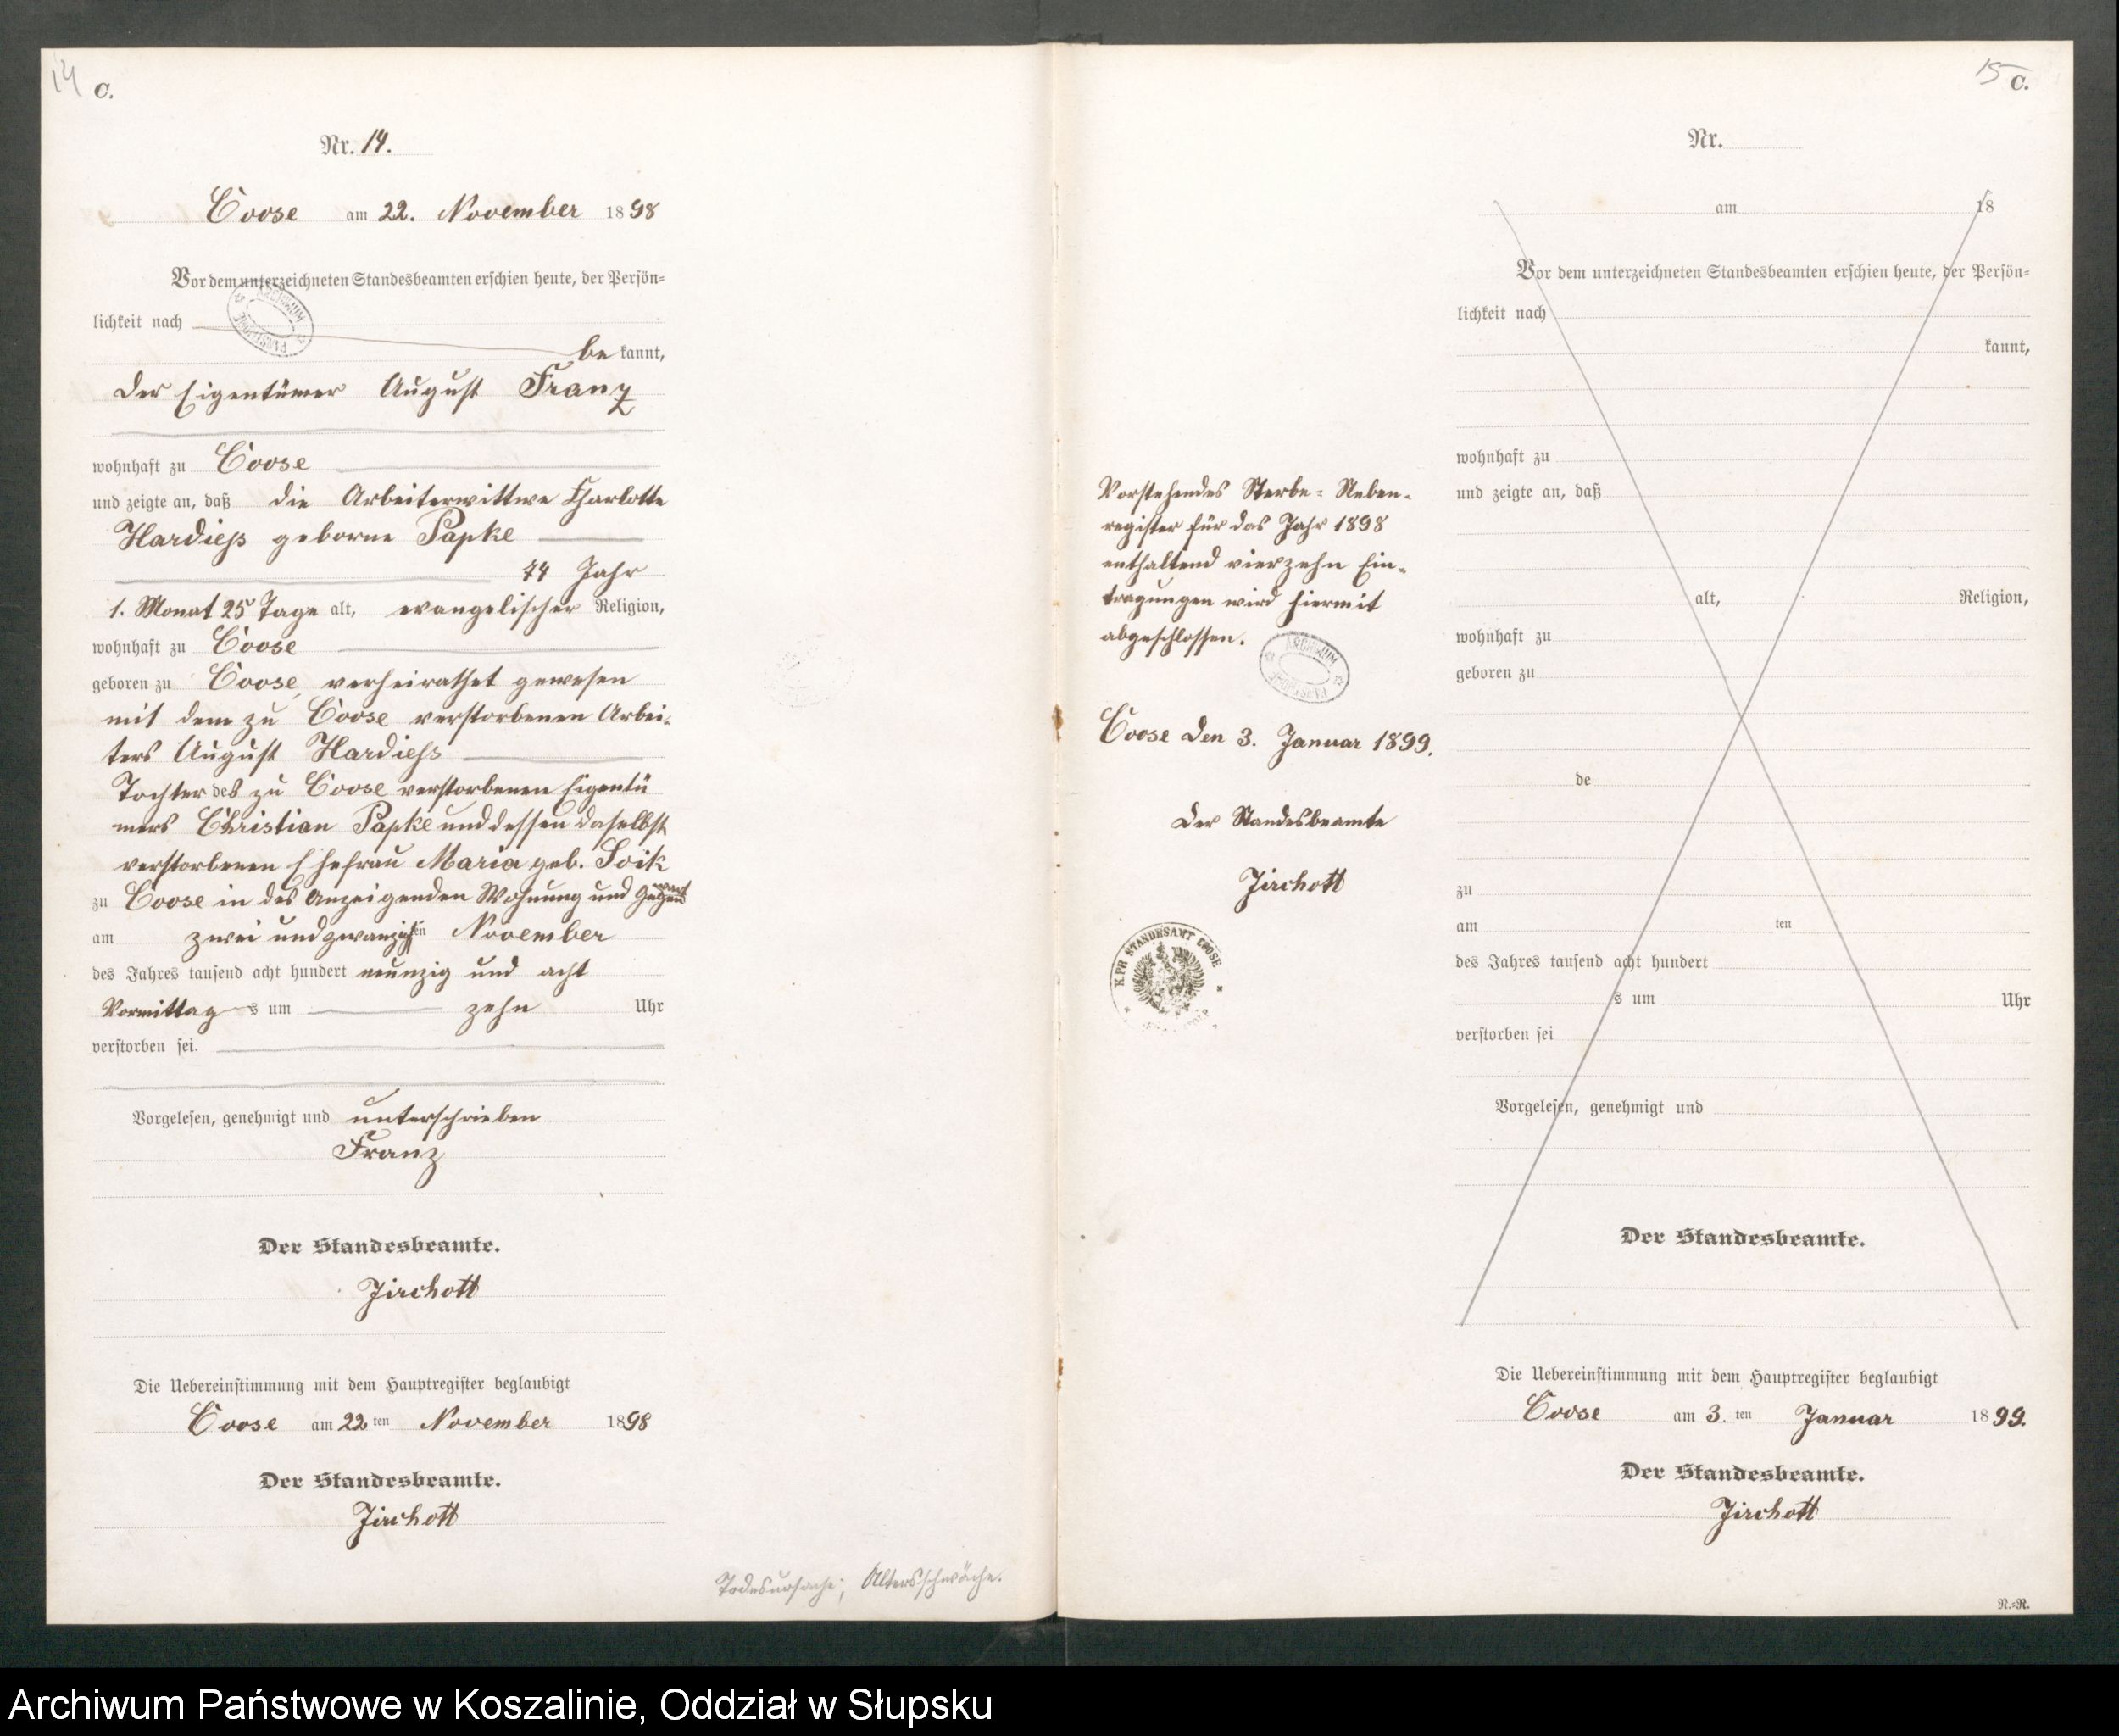 14 C.
Nr. 14.
Coose am 22. November 1898
Vor dem unterzeichneten Standesbeamten erschien heute, der Persön-
lichkeit nach
be kannt,
der Eigentümer August Franz
wohnhaft zu Coose
und zeigte an, daß die Arbeiterwittwe Charlotte
Hardiess geborne Papke
74 Jahr
1. Monat 25 Tage alt, evangelischer Religion,
wohnhaft zu Coose
geboren zu Coose, verheirathet gewesen
mit dem zu Coose verstorbenen Arbei-
ters August Hardiess
Tochter des zu Coose verstorbenen Eigentü
mers Christian Papke und dessen daselbst
verstorbenen Ehefrau Maria geb. Soik
zu Coose in des Anzeigenden Wohnung und Gegenwart
am zwei und zwanzigsten November
des Jahres tausend acht hundert neunzig und acht
Vormittag s um zehn Uhr
verstorben sei.
Vorgelesen, genehmigt und unterschrieben
Franz
Der Standesbeamte.
Jirchott
Die Uebereinstimmung mit dem Hauptregister beglaubigt
Coose am 22 ten November 1898
Der Standesbeamte.
Jirchott
Todesursache; Altersschwäche.
ARCHIWUM PAŃSTWOWE
Vorstehendes Sterbe-Neben-
register für das Jahr 1898
enthaltend vierzehn Ein-
tragungen wird hiermit
abgeschlossen.
ARCHIWUM PAŃSTWOWE
Coose den 3. Januar 1899.
Der Standesbeamte
Jirchott
K. PR STANDESAMT COOSE
15 C.
Nr.
am 18
Vor dem unterzeichneten Standesbeamten erschien heute, der Persön-
lichkeit nach
kannt,
wohnhaft zu
und zeigte an, daß
alt, Religion,
wohnhaft zu
geboren zu
de
zu
am ten
des Jahres tausend acht hundert
s um Uhr
verstorben sei
Vorgelesen, genehmigt und
Der Standesbeamte.
Die Uebereinstimmung mit dem Hauptregister beglaubigt
Coose am 3. ten Januar 1899.
Der Standesbeamte.
Jirchott
R.=R.
Archiwum Państwowe w Koszalinie, Oddział w Słupsku